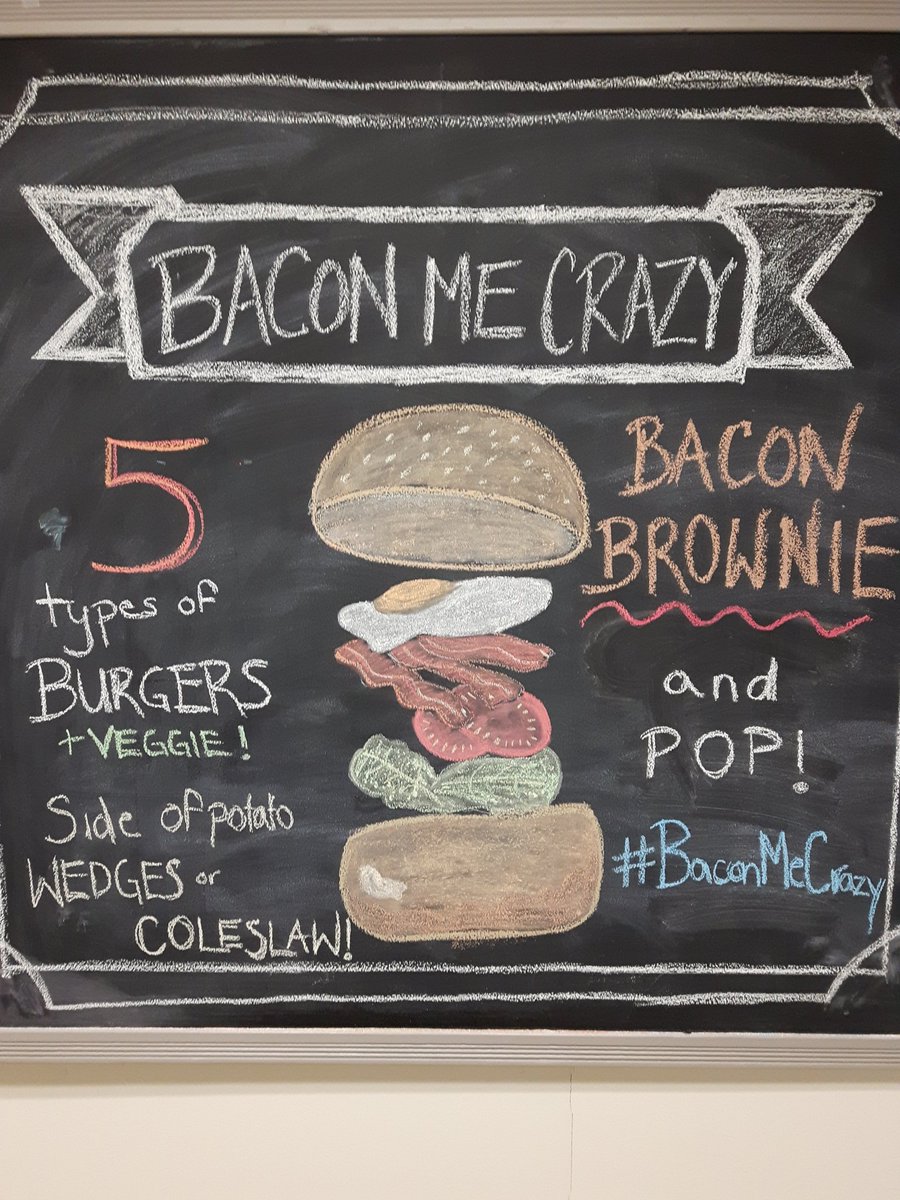 BACON ME CRAZY
5
types of
BURGERS
+ VEGGIE!
Side of potato
WEDGES or
COLESLAW!
BACON
BROWNIE
and
POP!
#BaconMeCrazy